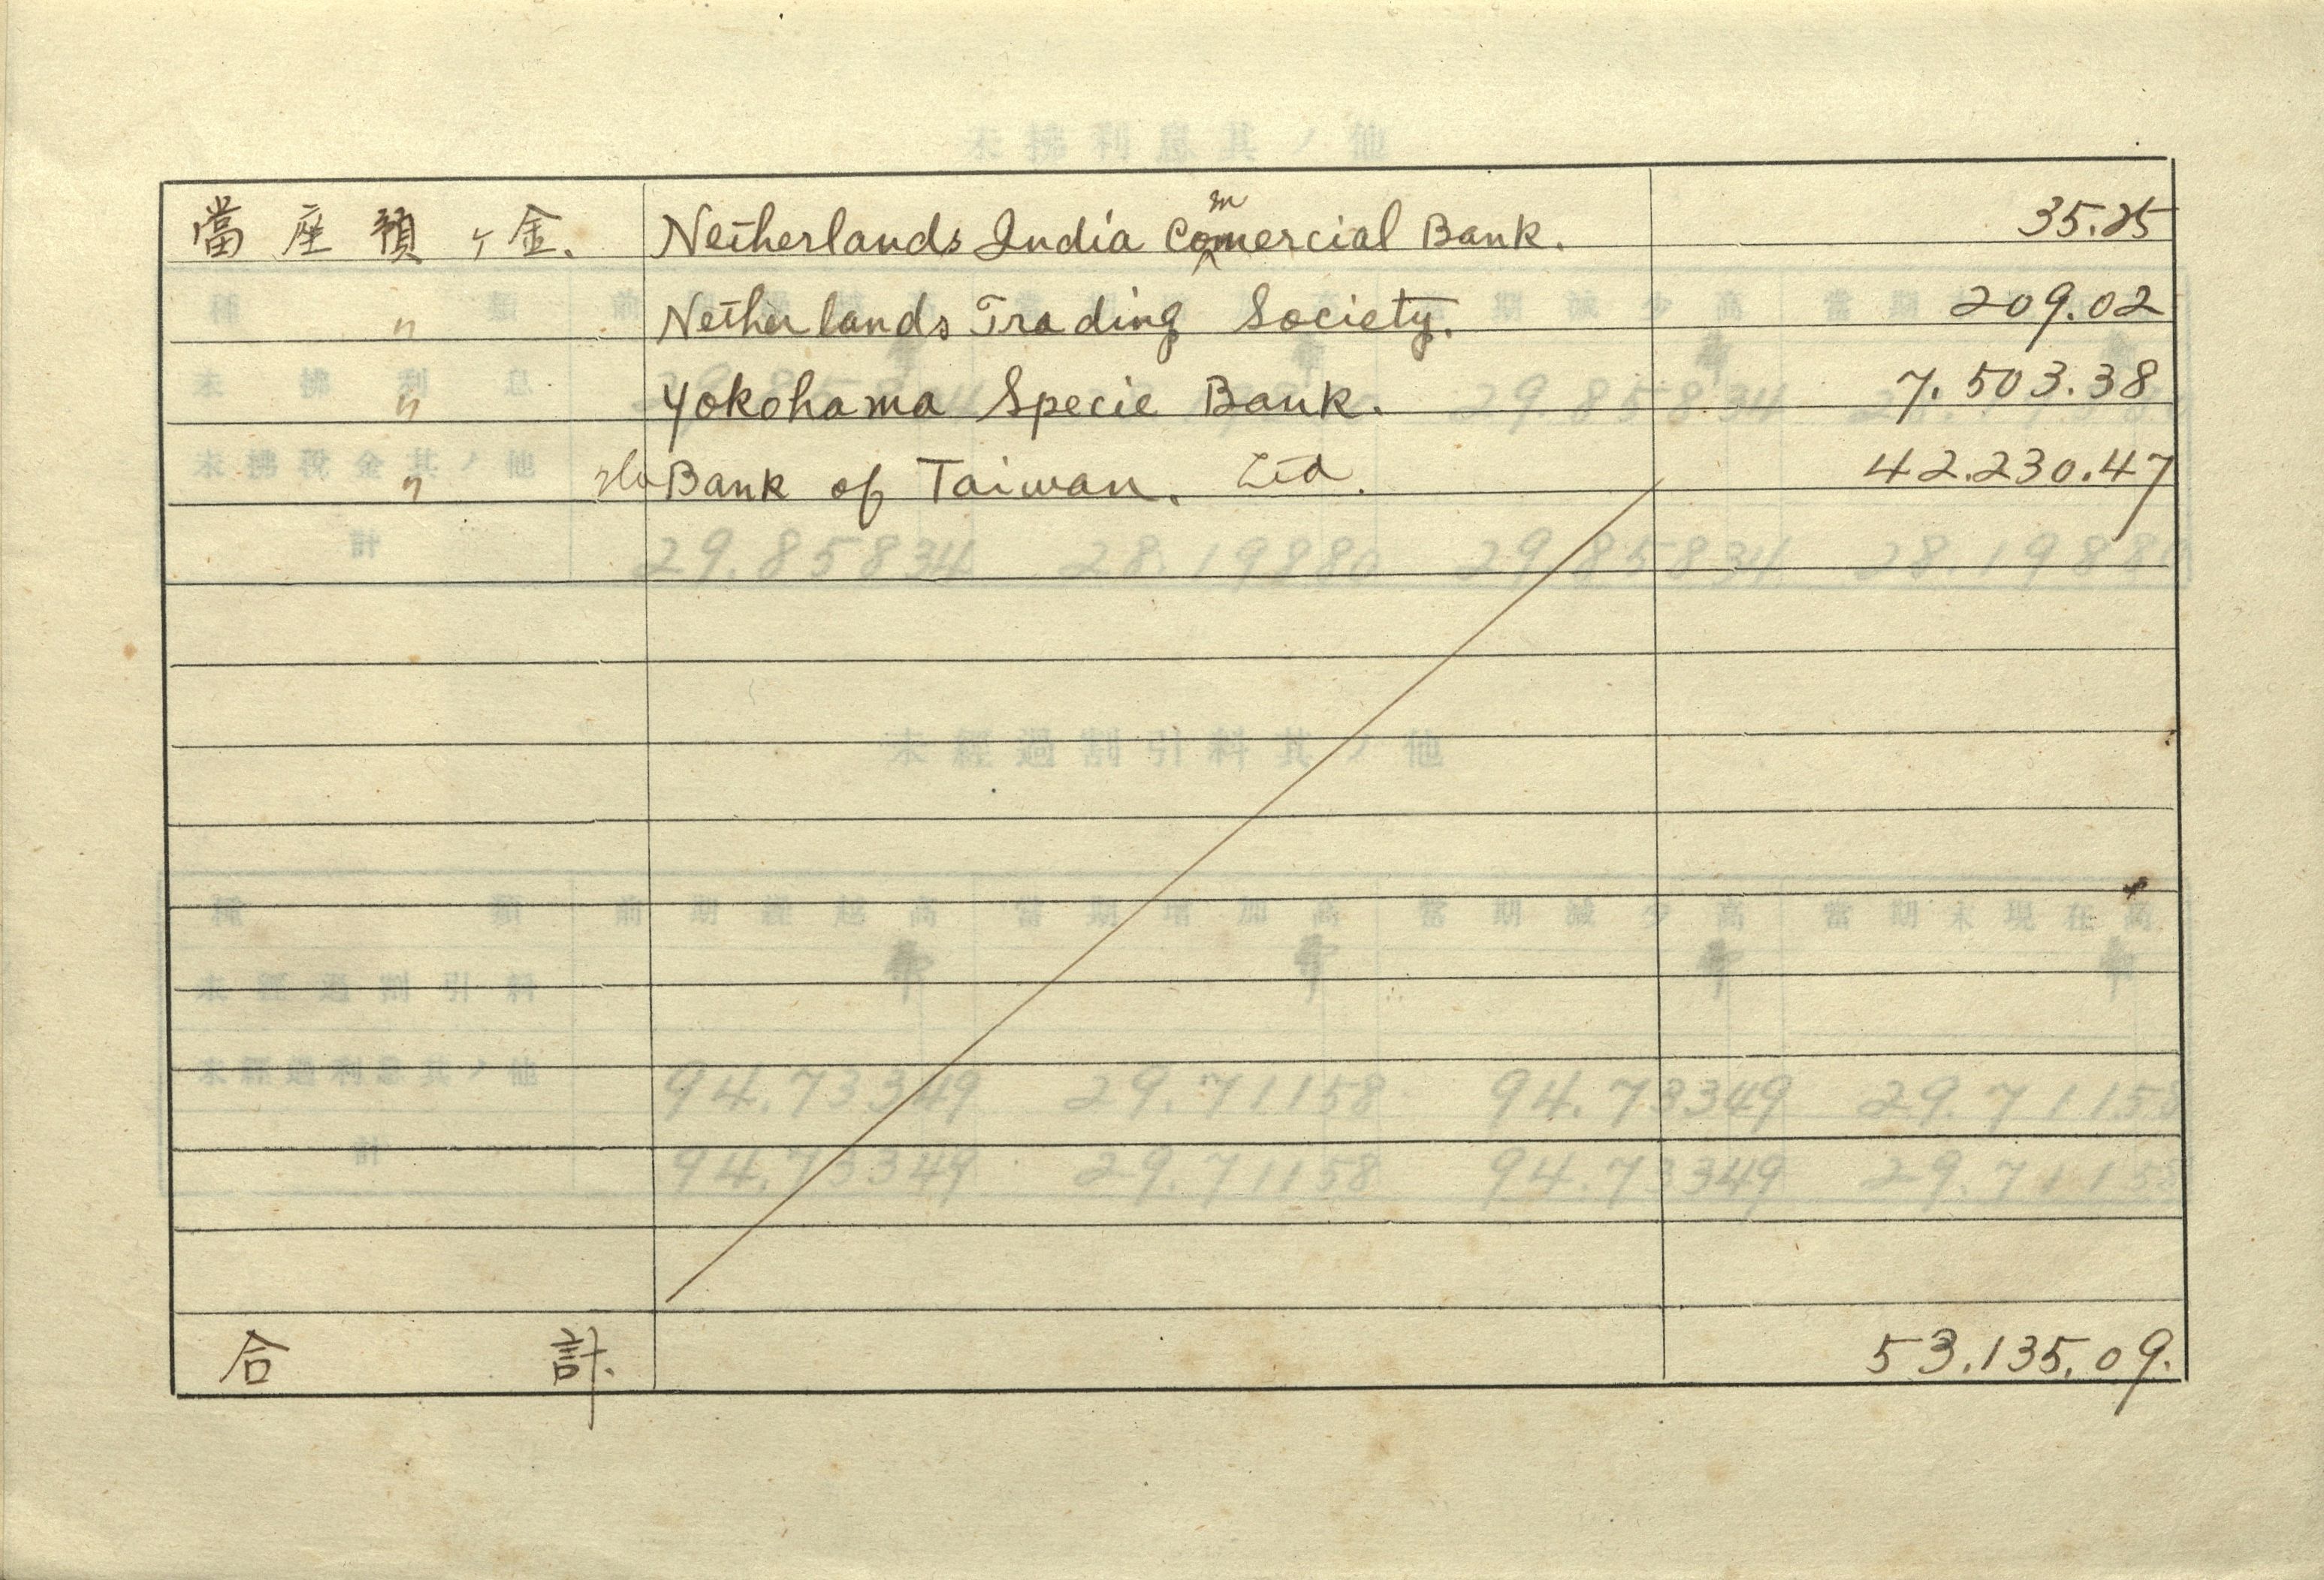 當座預ヶ金. Netherlands India Commercial Bank. 35.25
〃 Netherlands Trading Society. 209.02
〃 Yokohama Specie Bank. 7.503.38
〃 The Bank of Taiwan. Ltd. 42.230.47
合計. 53.135.09.